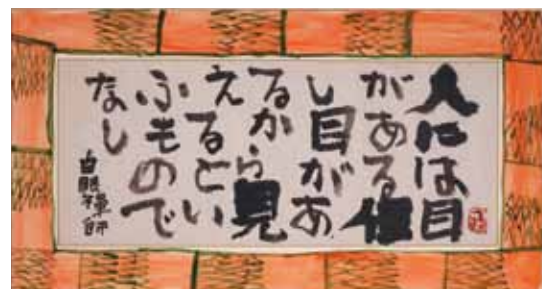 人には目
がある但
し目があ
るから見
えるとい
ふもので
なし
白眼禅師